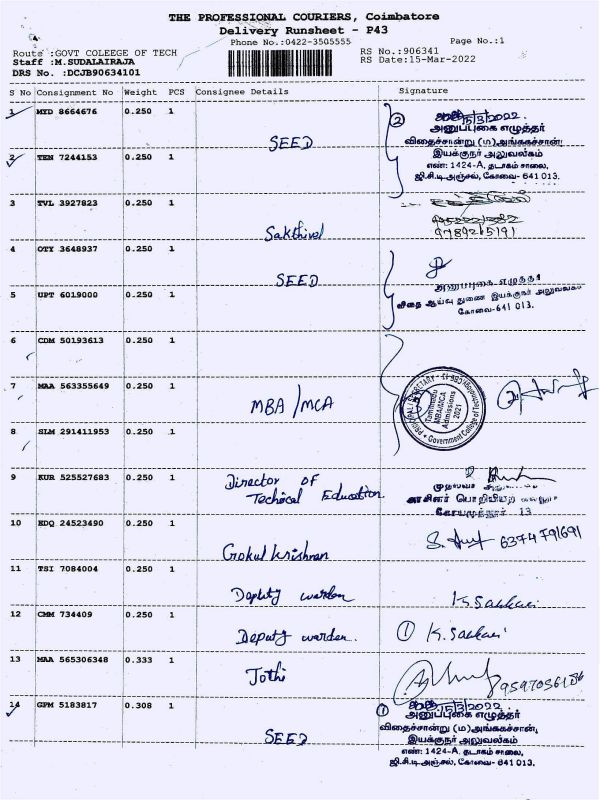 THE PROFESSIONAL COURIERS, Coimbatore
Delivery Runsheet - P43
Phone No.:0422-3505555 Page No.:1
Route :GOVT COLEEGE OF TECH RS No.:906341
Staff :M.SUDALAIRAJA RS Date:15-Mar-2022
DRS No. :DCJB90634101
S No Consignment No Weight PCS Consignee Details Signature
1 MYD 8664676 0.250 1
SEED
2 15/3/2022
அனுப்புகை எழுத்தர்
விதைச்சான்று (ம) அங்ககச்சான்று
இயக்குநர் அலுவலகம்
எண்: 1424-A, தடாகம் சாலை,
ஜி.சி.டி.அஞ்சல், கோவை- 641 013.
2 TEN 7244153 0.250 1
3 TVL 3927823 0.250 1
Sakthivel
9789215191
4 OTY 3648937 0.250 1
SEED
அனுப்புகை எழுத்தர்
விதை ஆய்வு துணை இயக்குநர் அலுவலகம்
கோவை-641 013.
5 UPT 6019000 0.250 1
6 CDM 50193613 0.250 1
7 MAA 563355649 0.250 1
MBA/MCA
PRINCIPAL / SECRETARY
Tamilnadu
MBA/MCA
Admissions
2021
Government College of Technology
8 SLM 291411953 0.250 1
9 KUR 525527683 0.250 1
Director of
Techical Education
கோயமுத்தூர் 13
10 KDQ 24523490 0.250 1
Gokul krishnan
6374791691
11 TSI 7084004 0.250 1
Deputy warden
12 CMM 734409 0.250 1
Deputy warden.
1
13 MAA 565306348 0.333 1
Jothi
14 GPM 5183817 0.308 1
SEED
1 15/3/2022
அனுப்புகை எழுத்தர்
விதைச்சான்று (ம) அங்ககச்சான்று,
இயக்குநர் அலுவலகம்
எண்: 1424-A, தடாகம் சாலை,
ஜி.சி.டி.அஞ்சல், கோவை- 641 013.